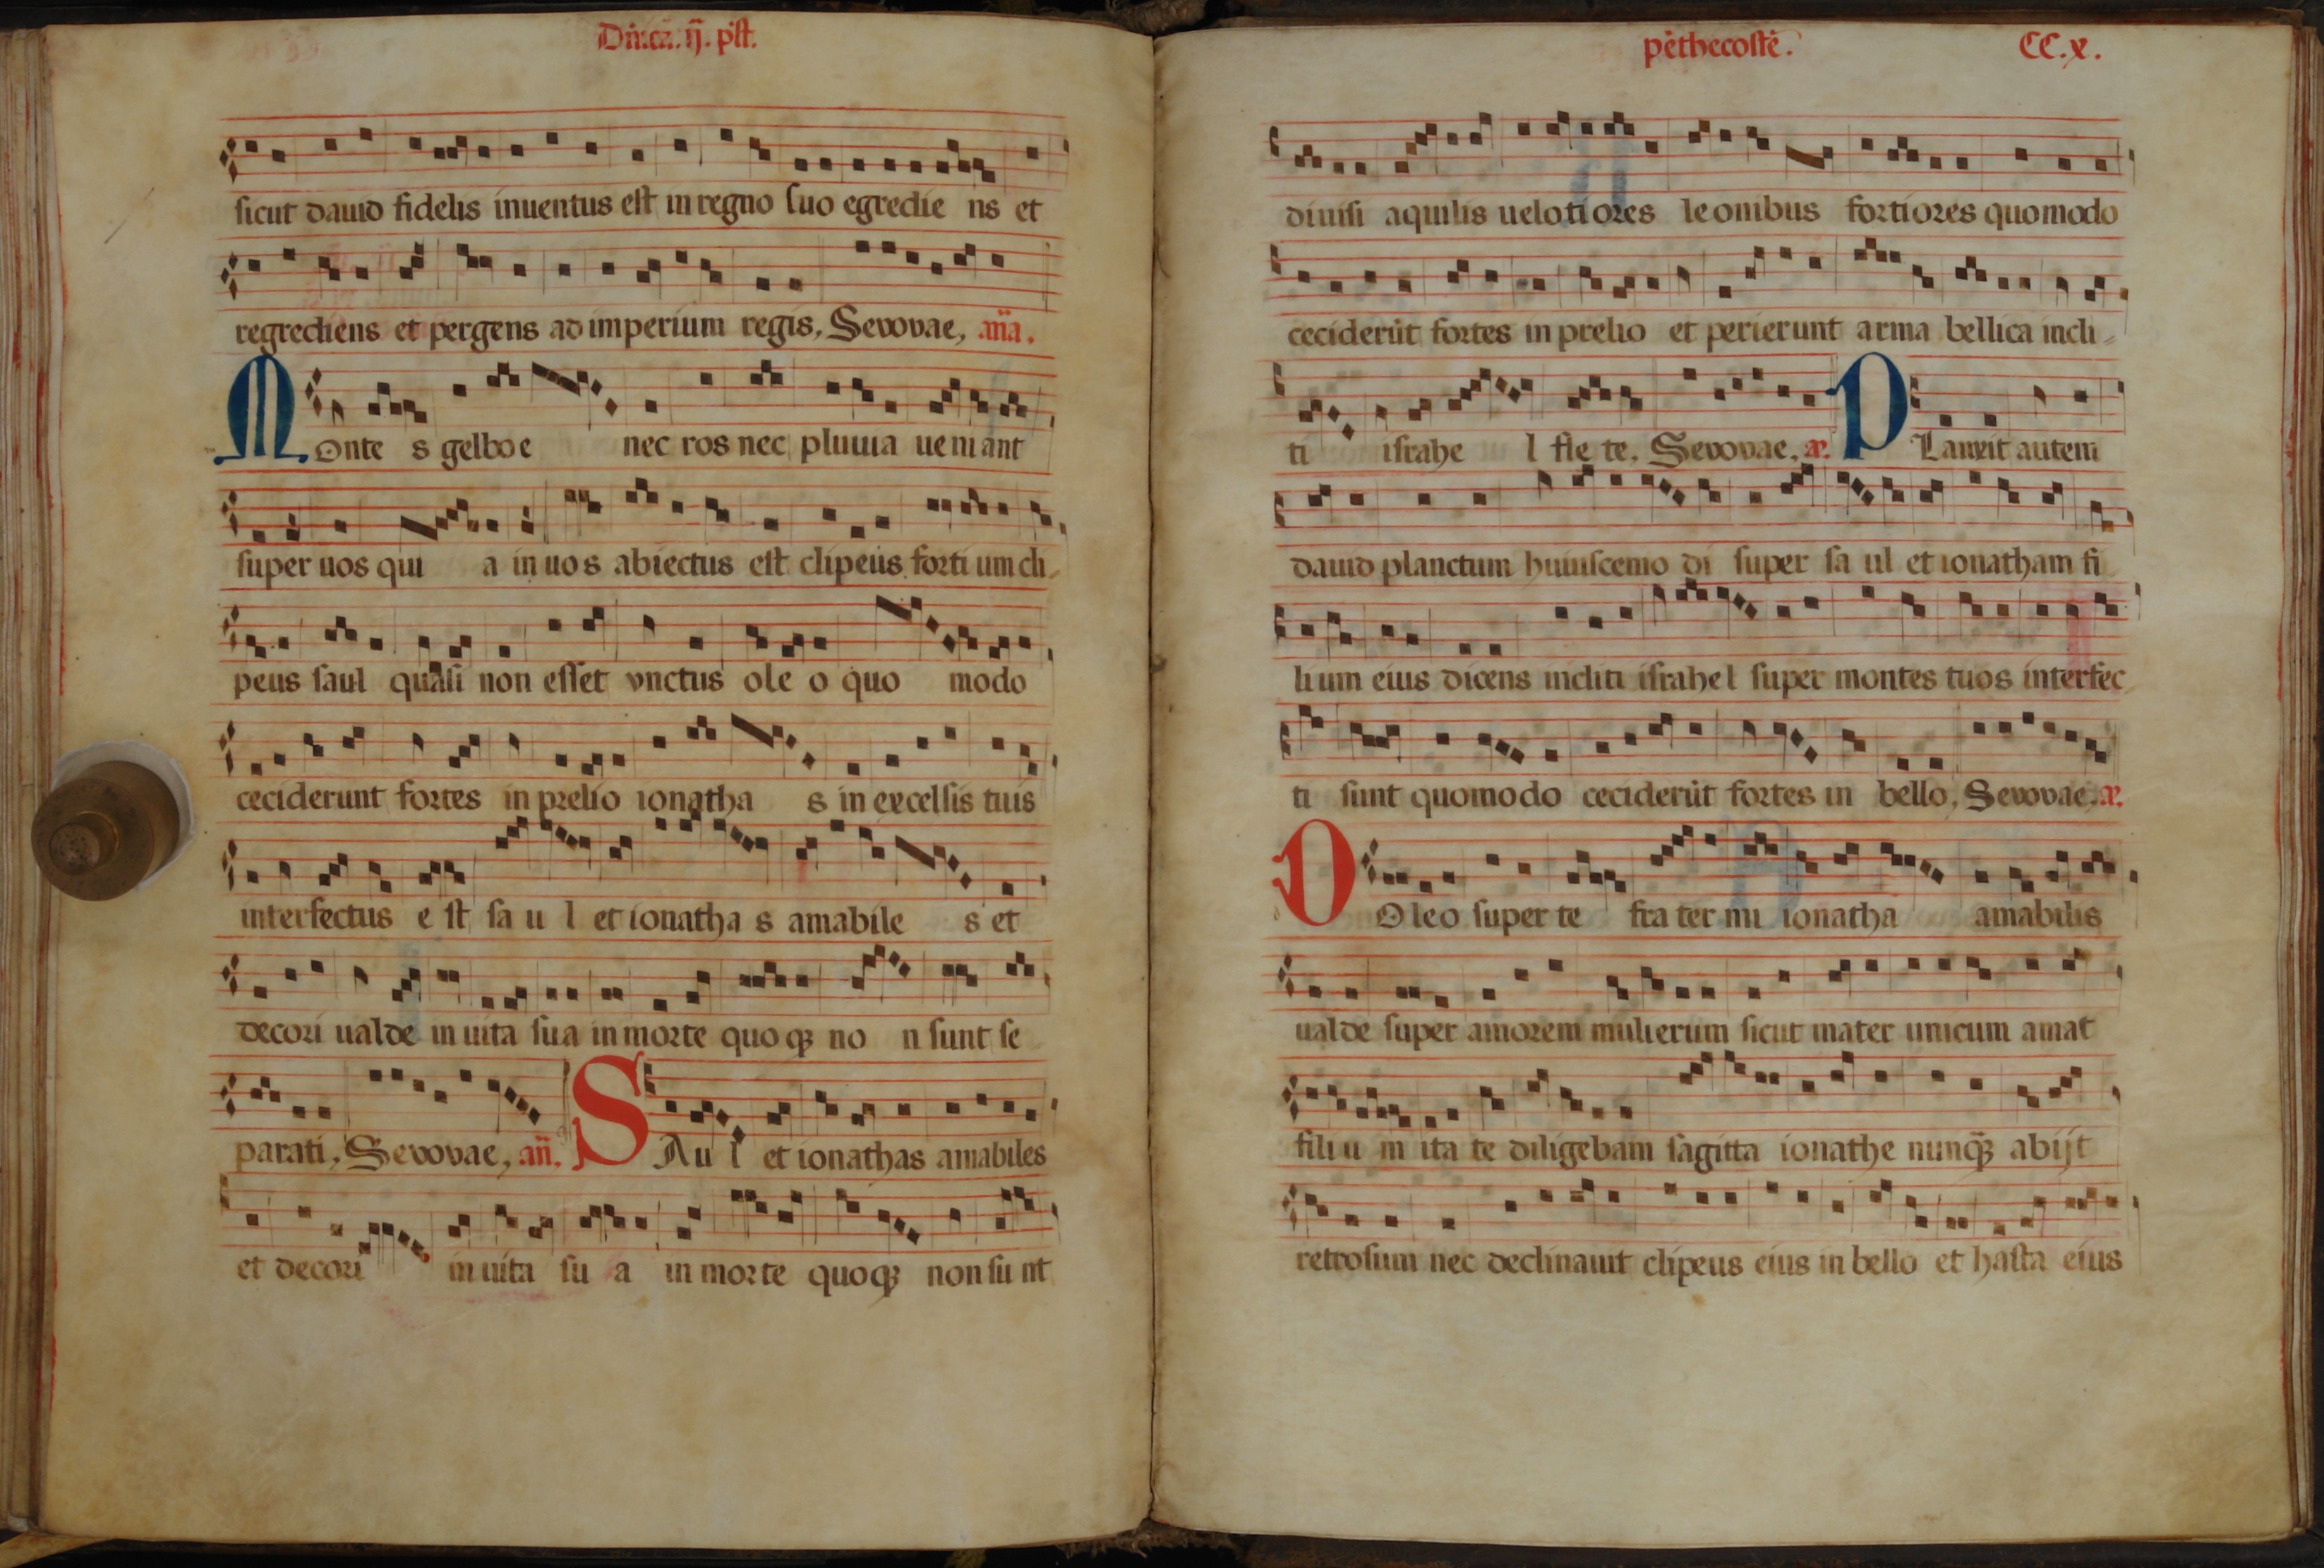 Dn̄ica. ij. pꝰt.
sicut dauid fidelis inuentus est in regno suo egredie ns et
regrediens et pergens ad imperium regis, Seuouae, an̄a.
Monte s gelboe nec ros nec pluuia ueniant
super uos qui a in uos abiectus est clipeus fortium cli-
peus saul quasi non esset vnctus ole o quo modo
ceciderunt fortes in prelio ionatha s in excelsis tuis
interfectus e st sa u l et ionatha s amabile s et
decori ualde in uita sua in morte quo qꝫ no n sunt se
parati, Seuouae, an̄.
SAu l et ionathas amabiles
et decori in uita su a in morte quoqꝫ non su nt
pēthecostē. CC.x.
diuisi aquilis uelotiores leonibus fortiores quomodo
ceciderūt fortes in prelio et perierunt arma bellica incli-
ti israhe l fle te, Seuouae, æ. PLanxit autem
dauid planctum huiuscemo di super sa ul et ionatham fi
lium eius dicens incliti israhel super montes tuos interfec
ti sunt quomodo ceciderūt fortes in bello, Seuouae, æ.
DOleo super te fra ter mi ionatha amabilis
ualde super amorem mulierum sicut mater unicum amat
filiu m ita te diligebam sagitta ionathe nunqꝫ abijt
retrosum nec declinauit clipeus eius in bello et hasta eius